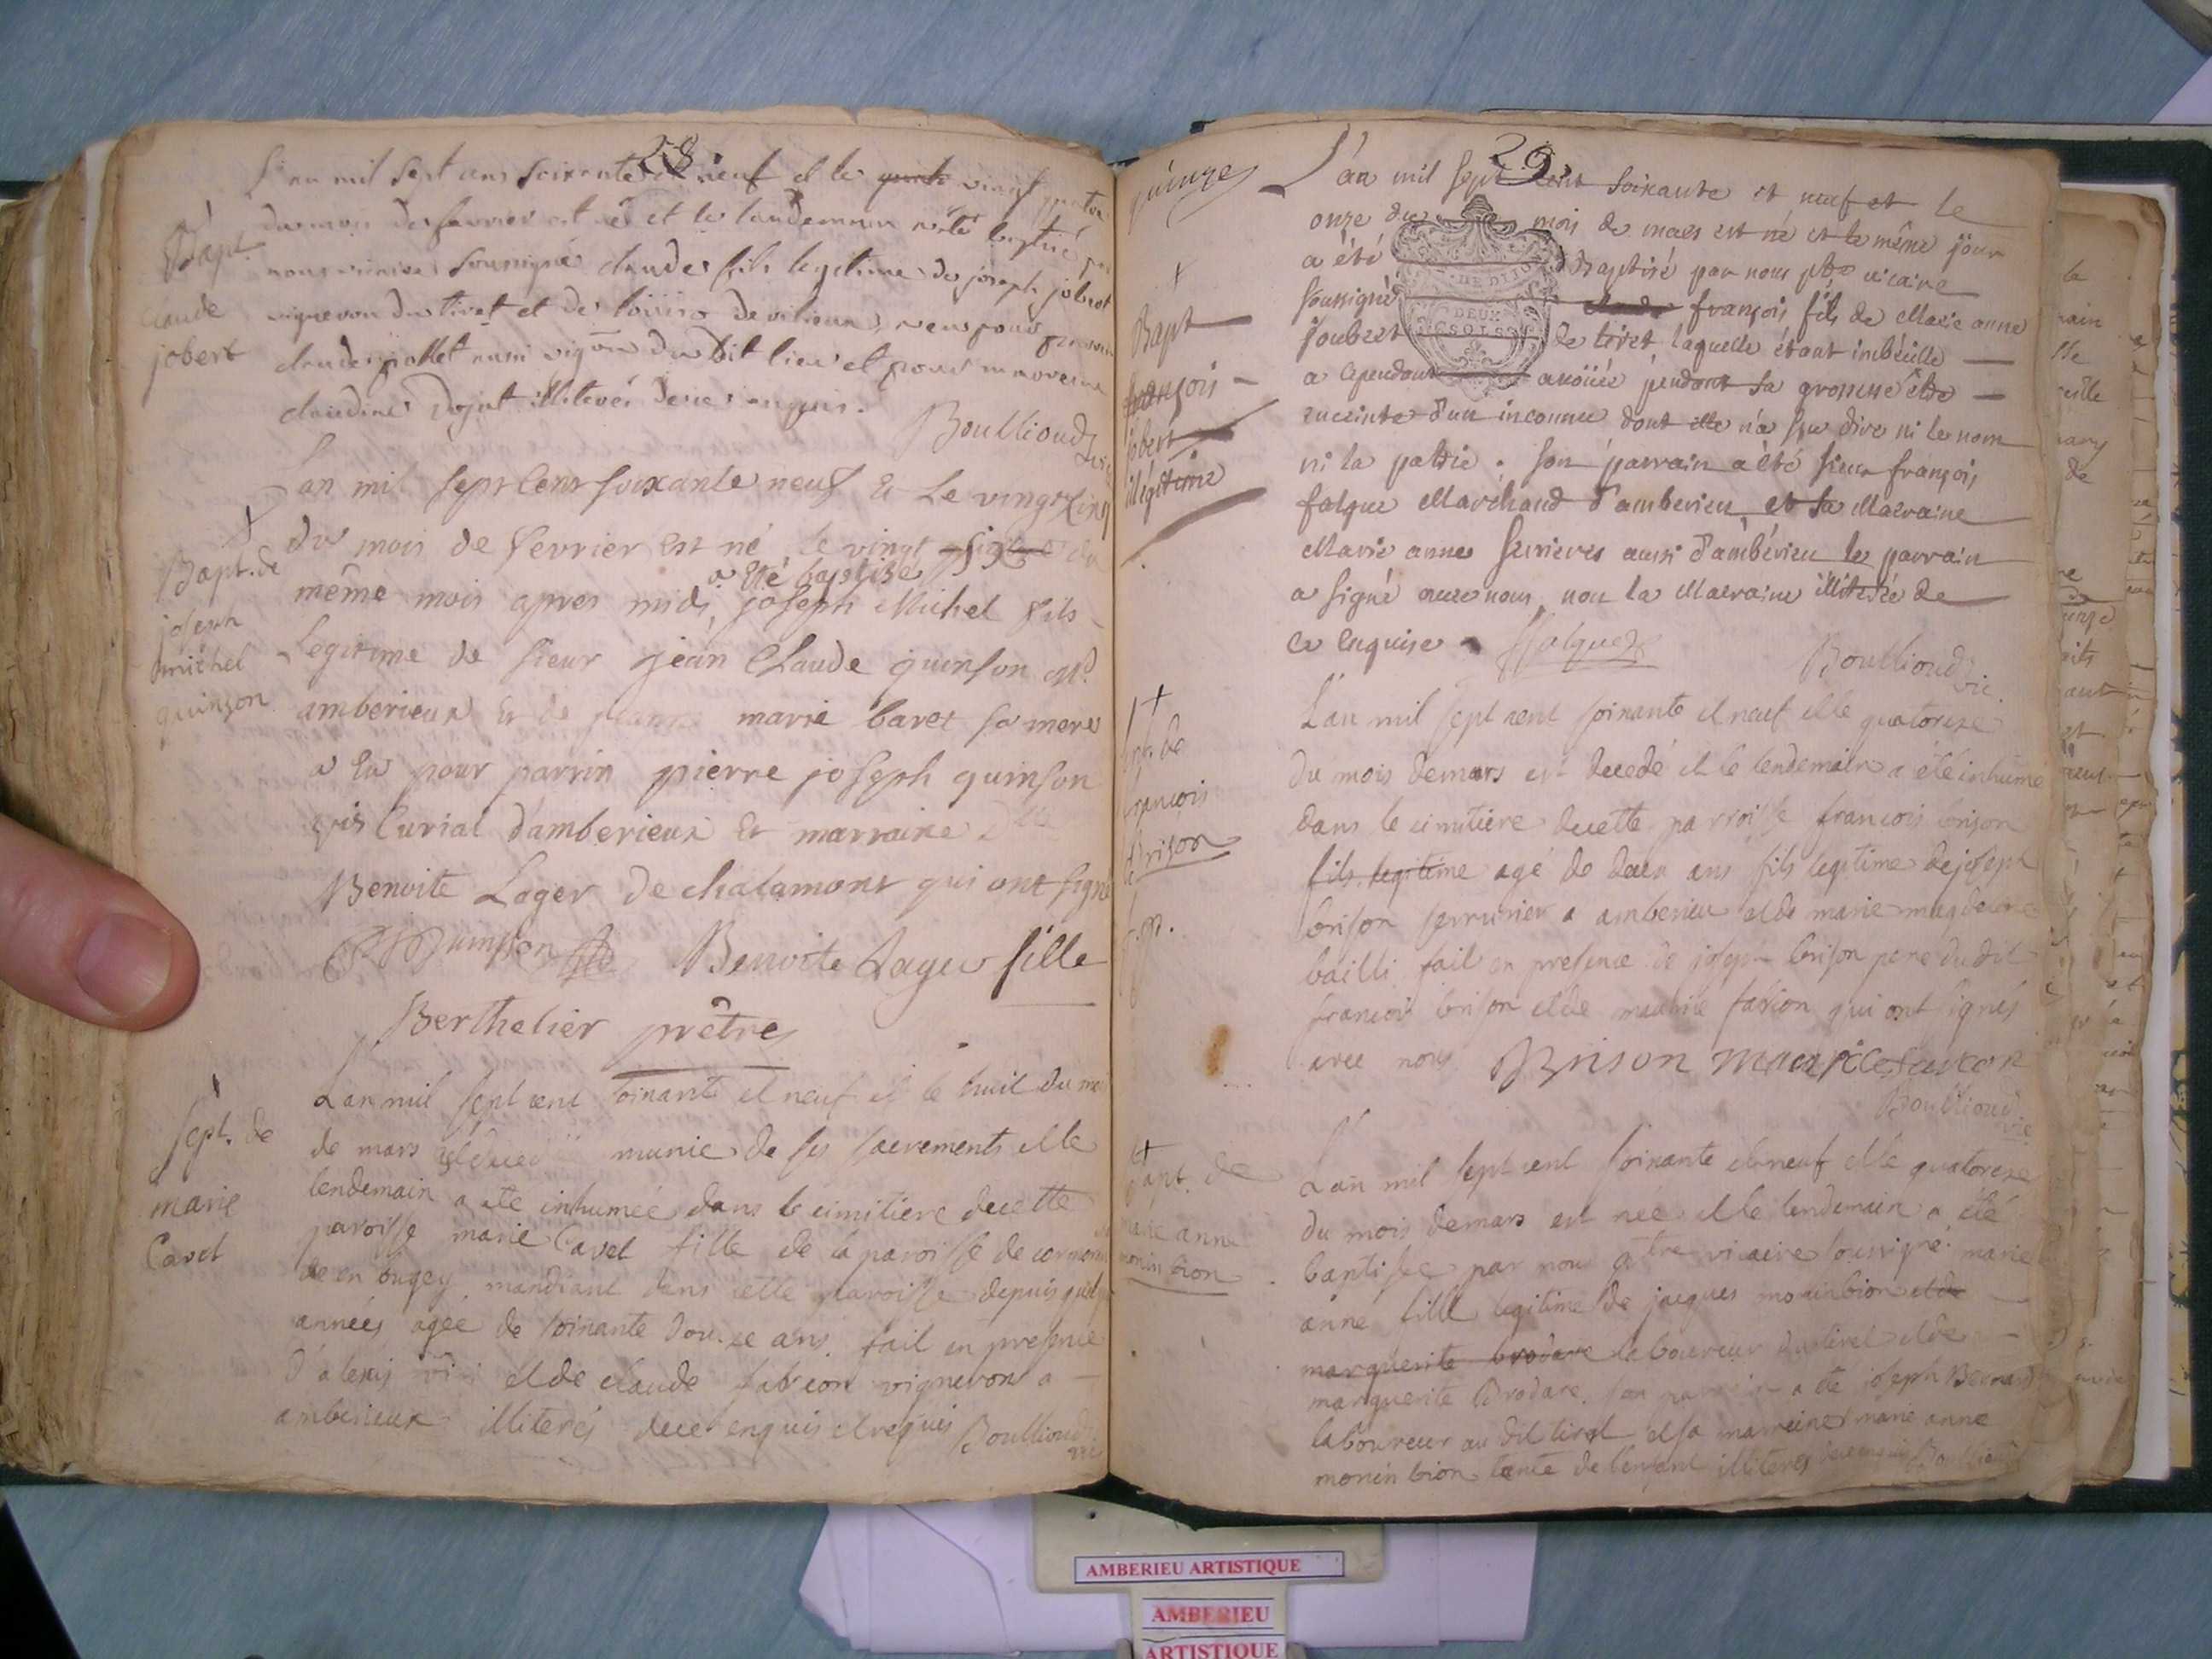 28.
L'an mil sept cens soixante et neuf et le quatre vingt quatre
du mois de fevrier est né et le landemain a été baptisé par
nous vicaire soussigné claude fils legitime de joseph jobert
vigneron du tiret et de
claude pollet aussi vigñon du dit lieu et pour marreine
claudine illiterés de ce enquis.
Boullioud vic
Bapt.
claude
jobert
Lan mil sept cent soixante neuf & Le vingt cinq
du mois de fevrier est né, le vingt six du
a été baptisé
même mois apres midi, joseph Michel fils
Legitime de sieur jean Claude quinson Md.
amberieux & de jeanne marie Cavet sa mere
a eu pour parrin pierre joseph quinson
Curial d'amberieux & marraine dlle
Benoite Lager de chalamont qui ont signé
Benoite Lager fille
Berthelier prêtre
Bapt. de
joseph
michel
quinson
Lan mil sept cent soixante et neuf et le huit du mois
de mars munie de ses sacrements et le
lendemain a eté inhumée dans le cimitiere de cette
paroisse marie Cavet fille de la paroisse de
en bugey, mandiant dans cette paroisse depuis quelq
années agée de soixante douze ans. fait en presence
d'alexis et de claude fabion vigneron a
amberieux illiterés de ce enquis et requis Boullioud
vic
sept. de
marie
Cavet
quinze
29.
L'an mil sept cent soixante et neuf et le
onze du mois de mars est né et le même jour
a été Baptisé par nous ptre vicaire
soussigné claude françois fils de Marie anne
joubert de tiret laquelle étant imbécille
a cependant avoüée pendant sa grossesse être
enceinte d'un inconnu dont elle n'a sçu dire ni le nom
ni la patrie. son parrain a été sieur françois
falque Marchand d'amberieu, et sa Marraine
Marie anne aussi d'ambérieu le parrain
a signé avec nous, non la Marraine illiterée de
ce enquise. Falque
Boullioud vic.
DEUX
SOLS
Bapt
françois
jobert
illégitime
L'an mil sept cent soixante et neuf et le quatorze
du mois de mars est decedé et le lendemain a été inhumé
dans le cimitiere de cette parroisse francois brison
fils legitime agé de deux ans fils legitime de joseph
brison serrurier a amberieu et de marie magdeleine
bailli fait en presence de joseph brison pere du dit
francois brison et de maurice favion qui ont signés
avec nous Brison maurice favion
Boullioud
vic
spt. de
francois
Brison
L'an mil sept cent soixante et neuf et le quatorze
du mois de mars est née et le lendemain a été
baptisée par nous ptre vicaire soussigné marie
anne fille legitime de jacques moninbion et de
marguerite brodare laboureur du tiret et de
marguerite Brodare. son parrain a été joseph Bernard
laboureur au dit tiret et sa marreine marie anne
monin bion tante de l'enfant illiterés de ce enquis Boullioud
Bapt. de
marie anne
monin bion
AMBERIEU ARTISTIQUE
AMBERIEU
ARTISTIQUE